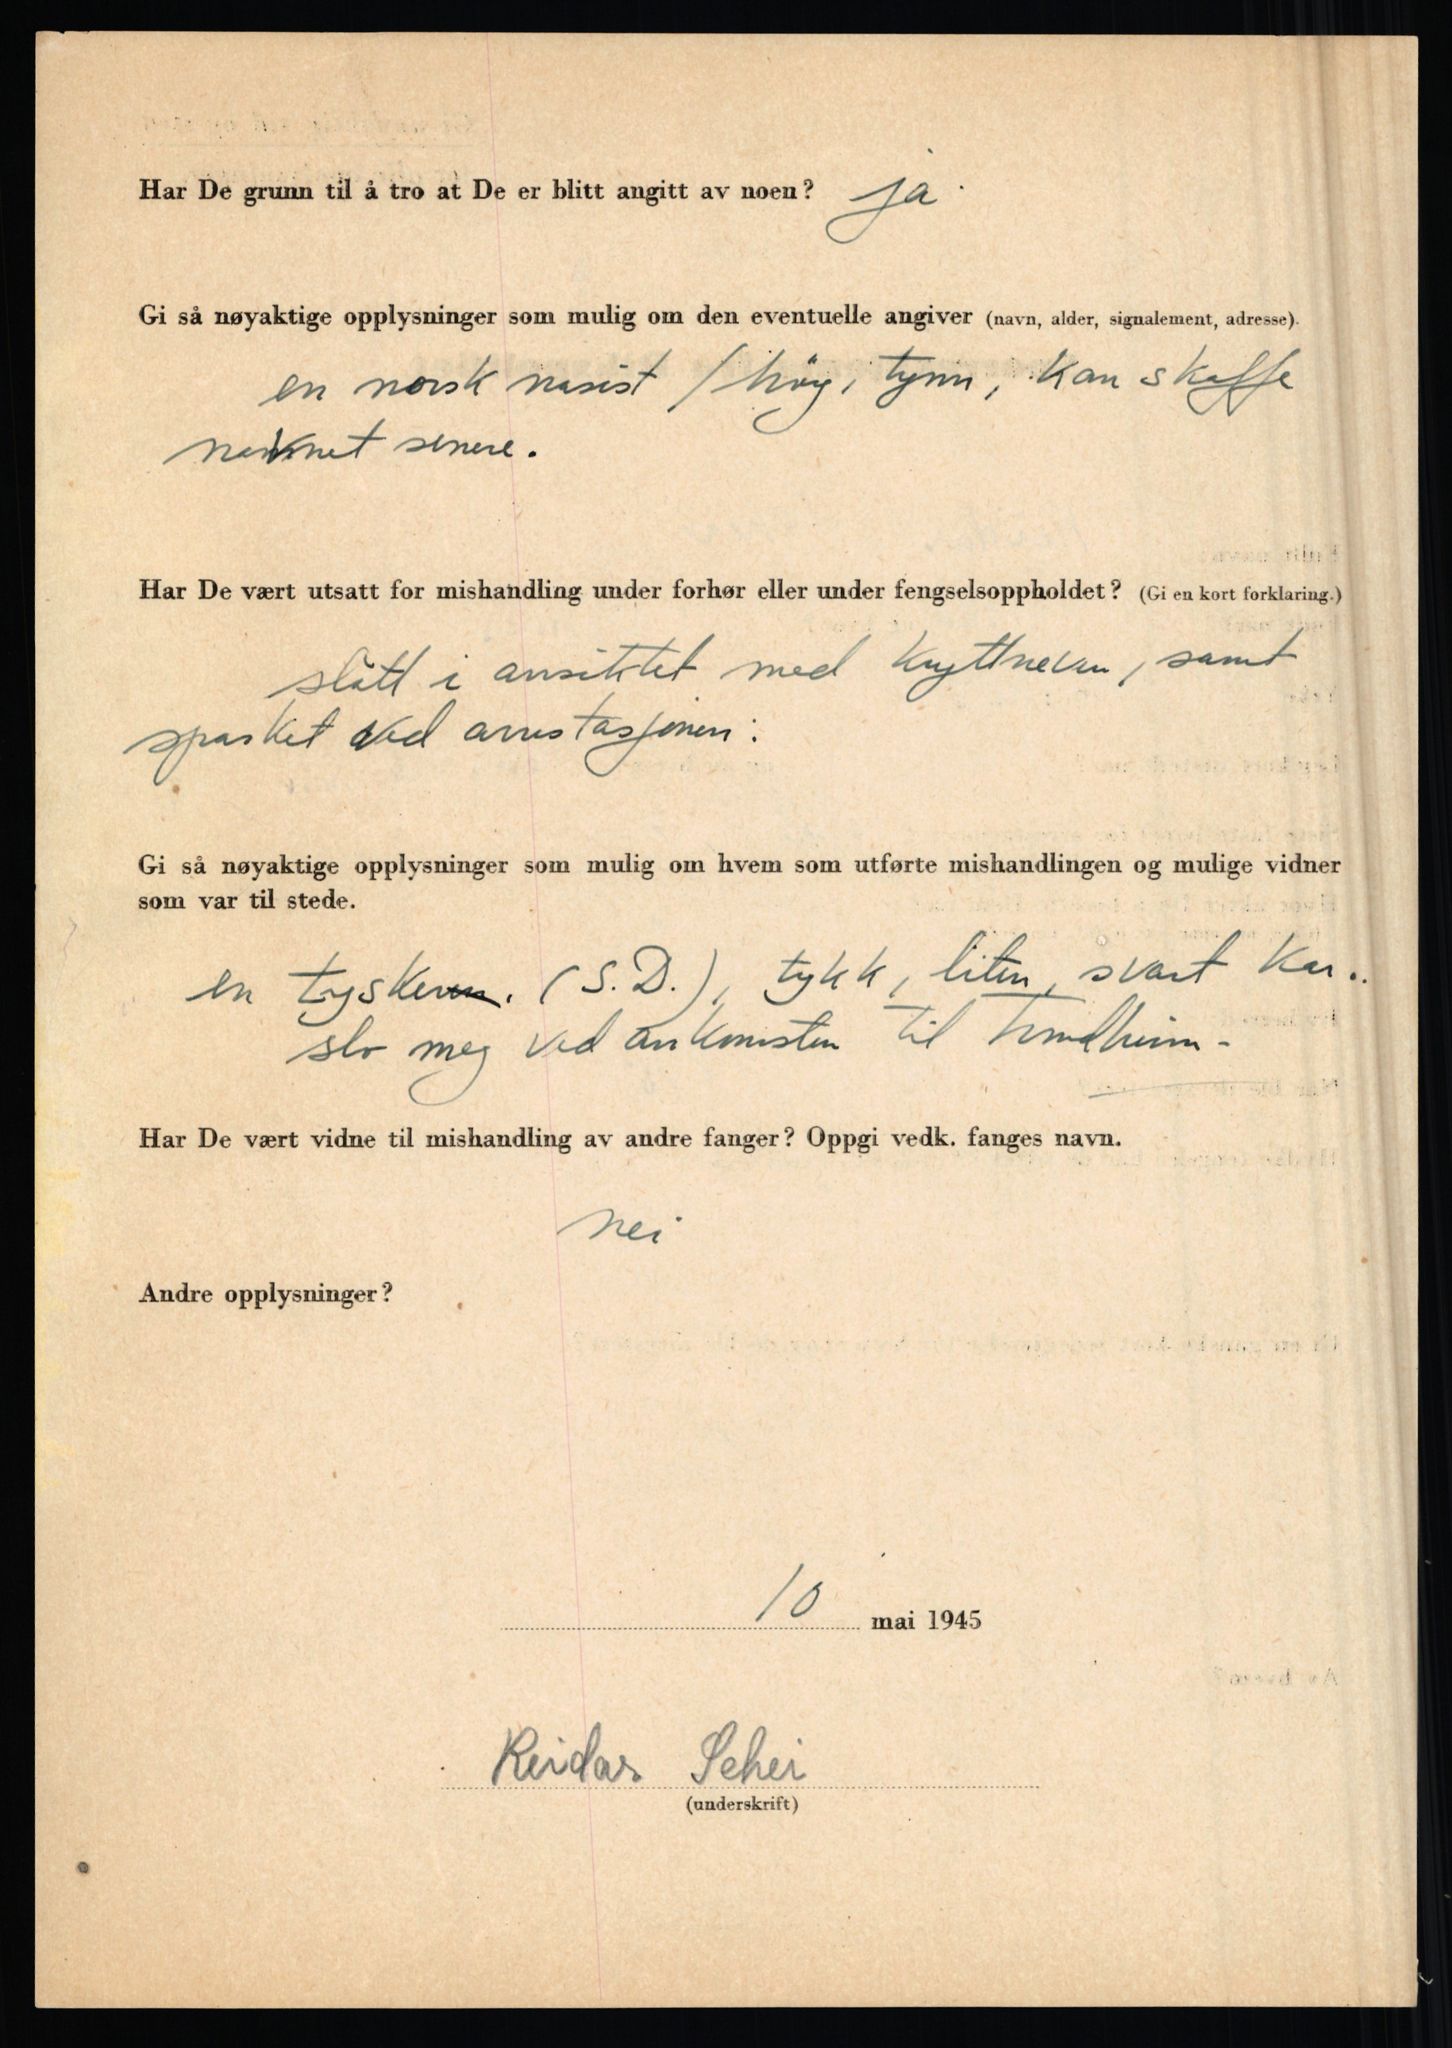 Har De grunn til å tro at De er blitt angitt av noen? ja.
Gi så nøyaktige opplysninger som mulig om den eventuelle angiver (navn, alder, signalement, adresse).
en norsk nasist / høy, tynn, kan skaffe
navnet senere.
Har De vært utsatt for mishandling under forhør eller under fengselsoppholdet? (Gi en kort forklaring.)
slått i ansiktet med knyttneven, samt
sparket ved arrestasjonen.
Gi så nøyaktige opplysninger som mulig om hvem som utførte mishandlingen og mulige vidner
som var til stede.
en tysker. (S.D.), tykk, liten, svart kar..
slo meg ved ankomsten til Trondheim -
Har De vært vidne til mishandling av andre fanger? Oppgi vedk. fanges navn.
nei
Andre opplysninger?
10 mai 1945
Reidar Schei
(underskrift)